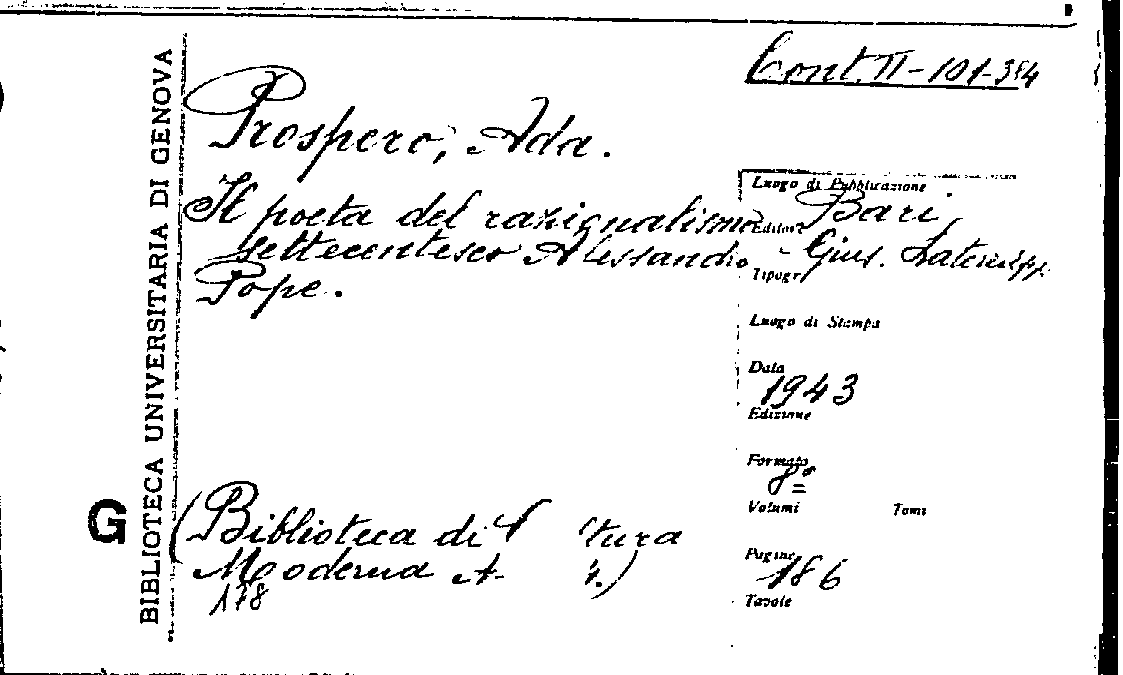 Cont. II-101-384
BIBLIOTECA UNIVERSITARIA DI GENOVA
G
Prospero, Ada.
Il poeta del razionalismo
settecentesco Alessandro
Pope.
(Biblioteca di tura
Moderna
178
Luogo di Pubblicazione
Bari,
Editore
Gius.
Tipogr
Luogo di Stampa
Data
1943
Edizione
Formato
8º
Volumi Tomi
Pagine
186
Tavole